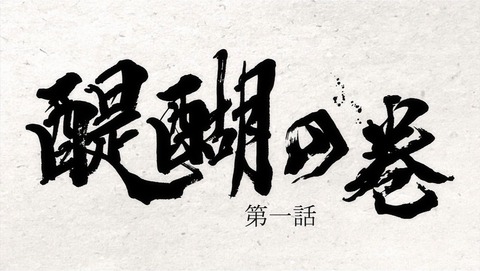 醍醐の巻
第一話